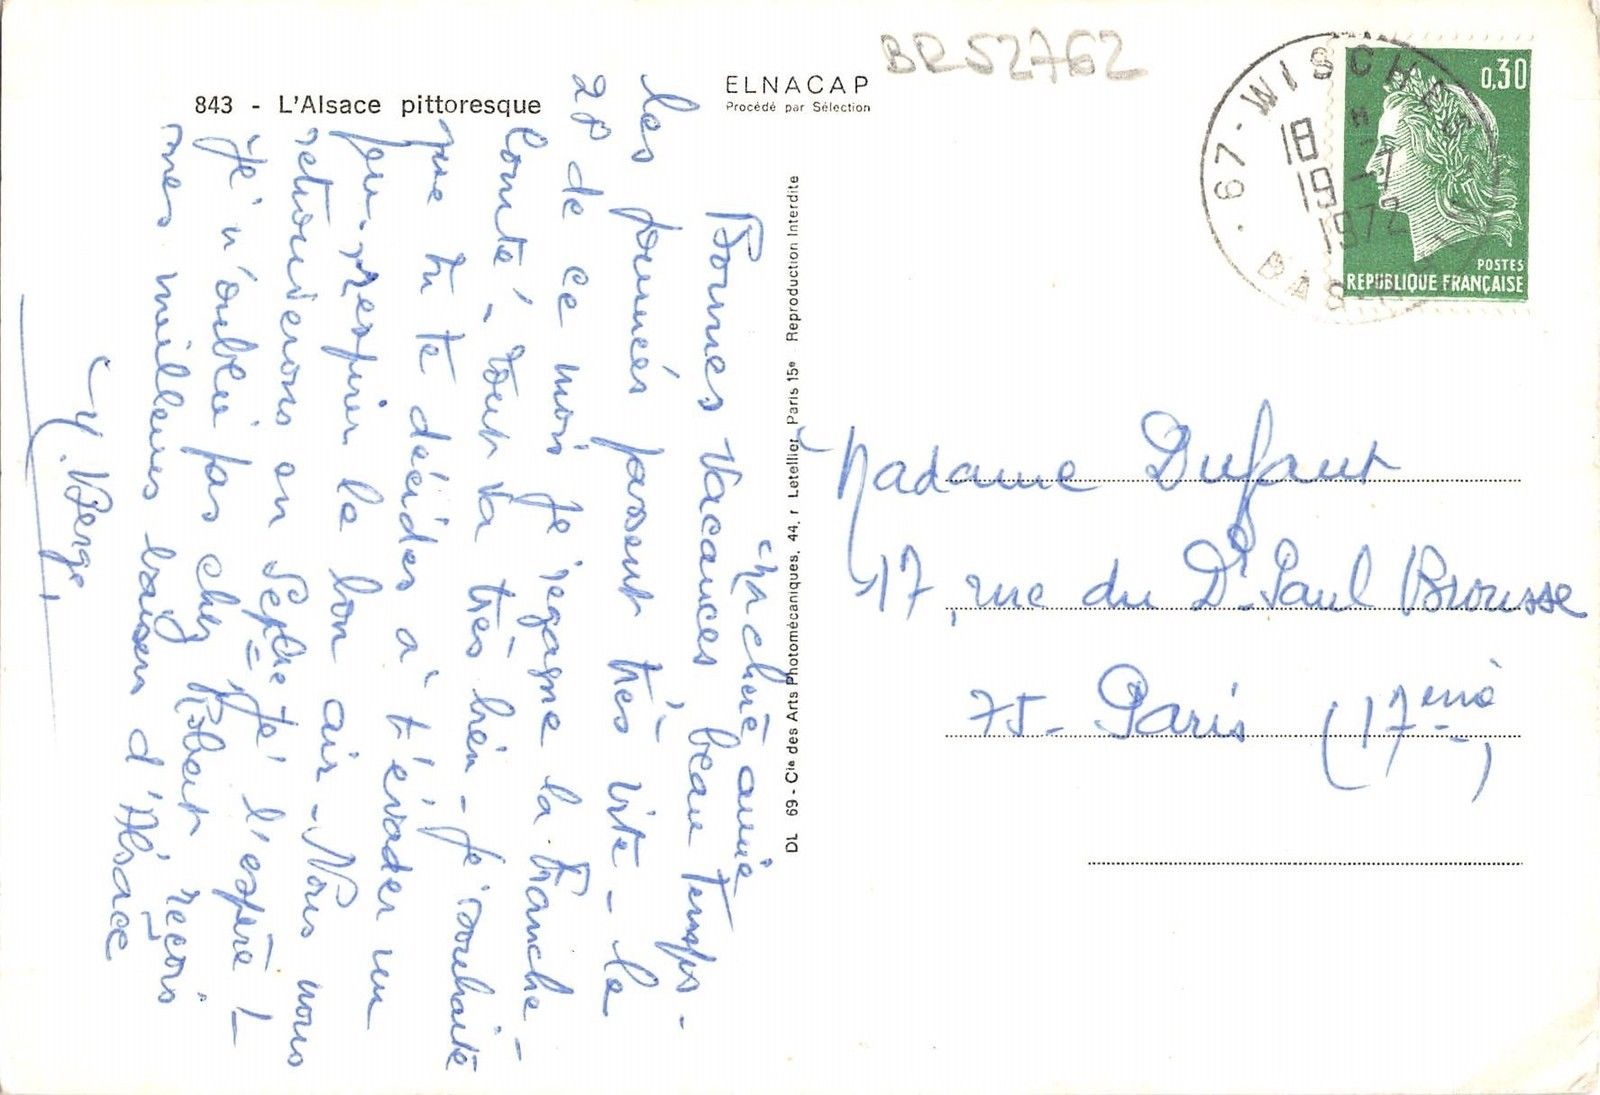 843 - L'Alsace pittoresque
ELNACAP
Procédé par Sélection
BR52762
67-WISCHES
18 H
19 -7
1972
BAS-
0,30
POSTES
REPUBLIQUE FRANÇAISE
DL 69 - Cie des Arts Photomécaniques, 44, r Letellier, Paris 15e Reproduction Interdite
Ma chère amie
Bonnes vacances, beau temps -
les journées passent très vite - le
28 de ce mois je regagne la Franche-
Comté - tout va très bien - je souhaite
que tu te décides à t'évader un
peu - respirer le bon air - Nous nous
retrouverons en Septbre je l'espère !
Je n'oublie pas chez Robert reçois
mes meilleurs baisers d'Alsace
Y. Berge
Madame Dufaut
17, rue du Dr Paul Brousse
75 - Paris (17ème)